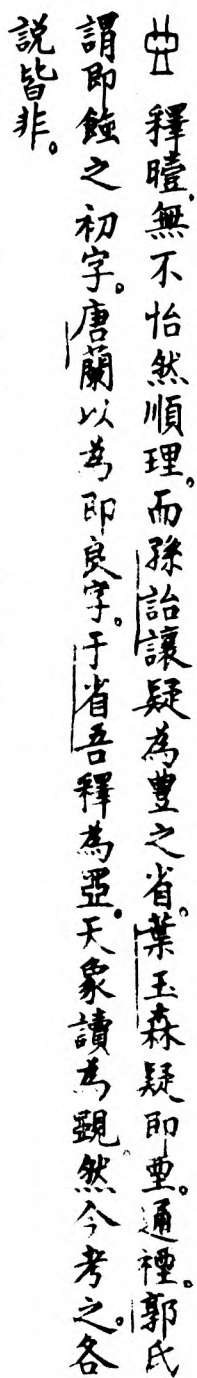 釋曀，無不怡然順理。而孫詒讓疑為豐之省。葉玉森疑即亜。通禋。郭氏
謂即饐之初字。唐蘭以為即良字。于省吾釋為亞。天象讀為䫅。然今考之。各
說皆非。